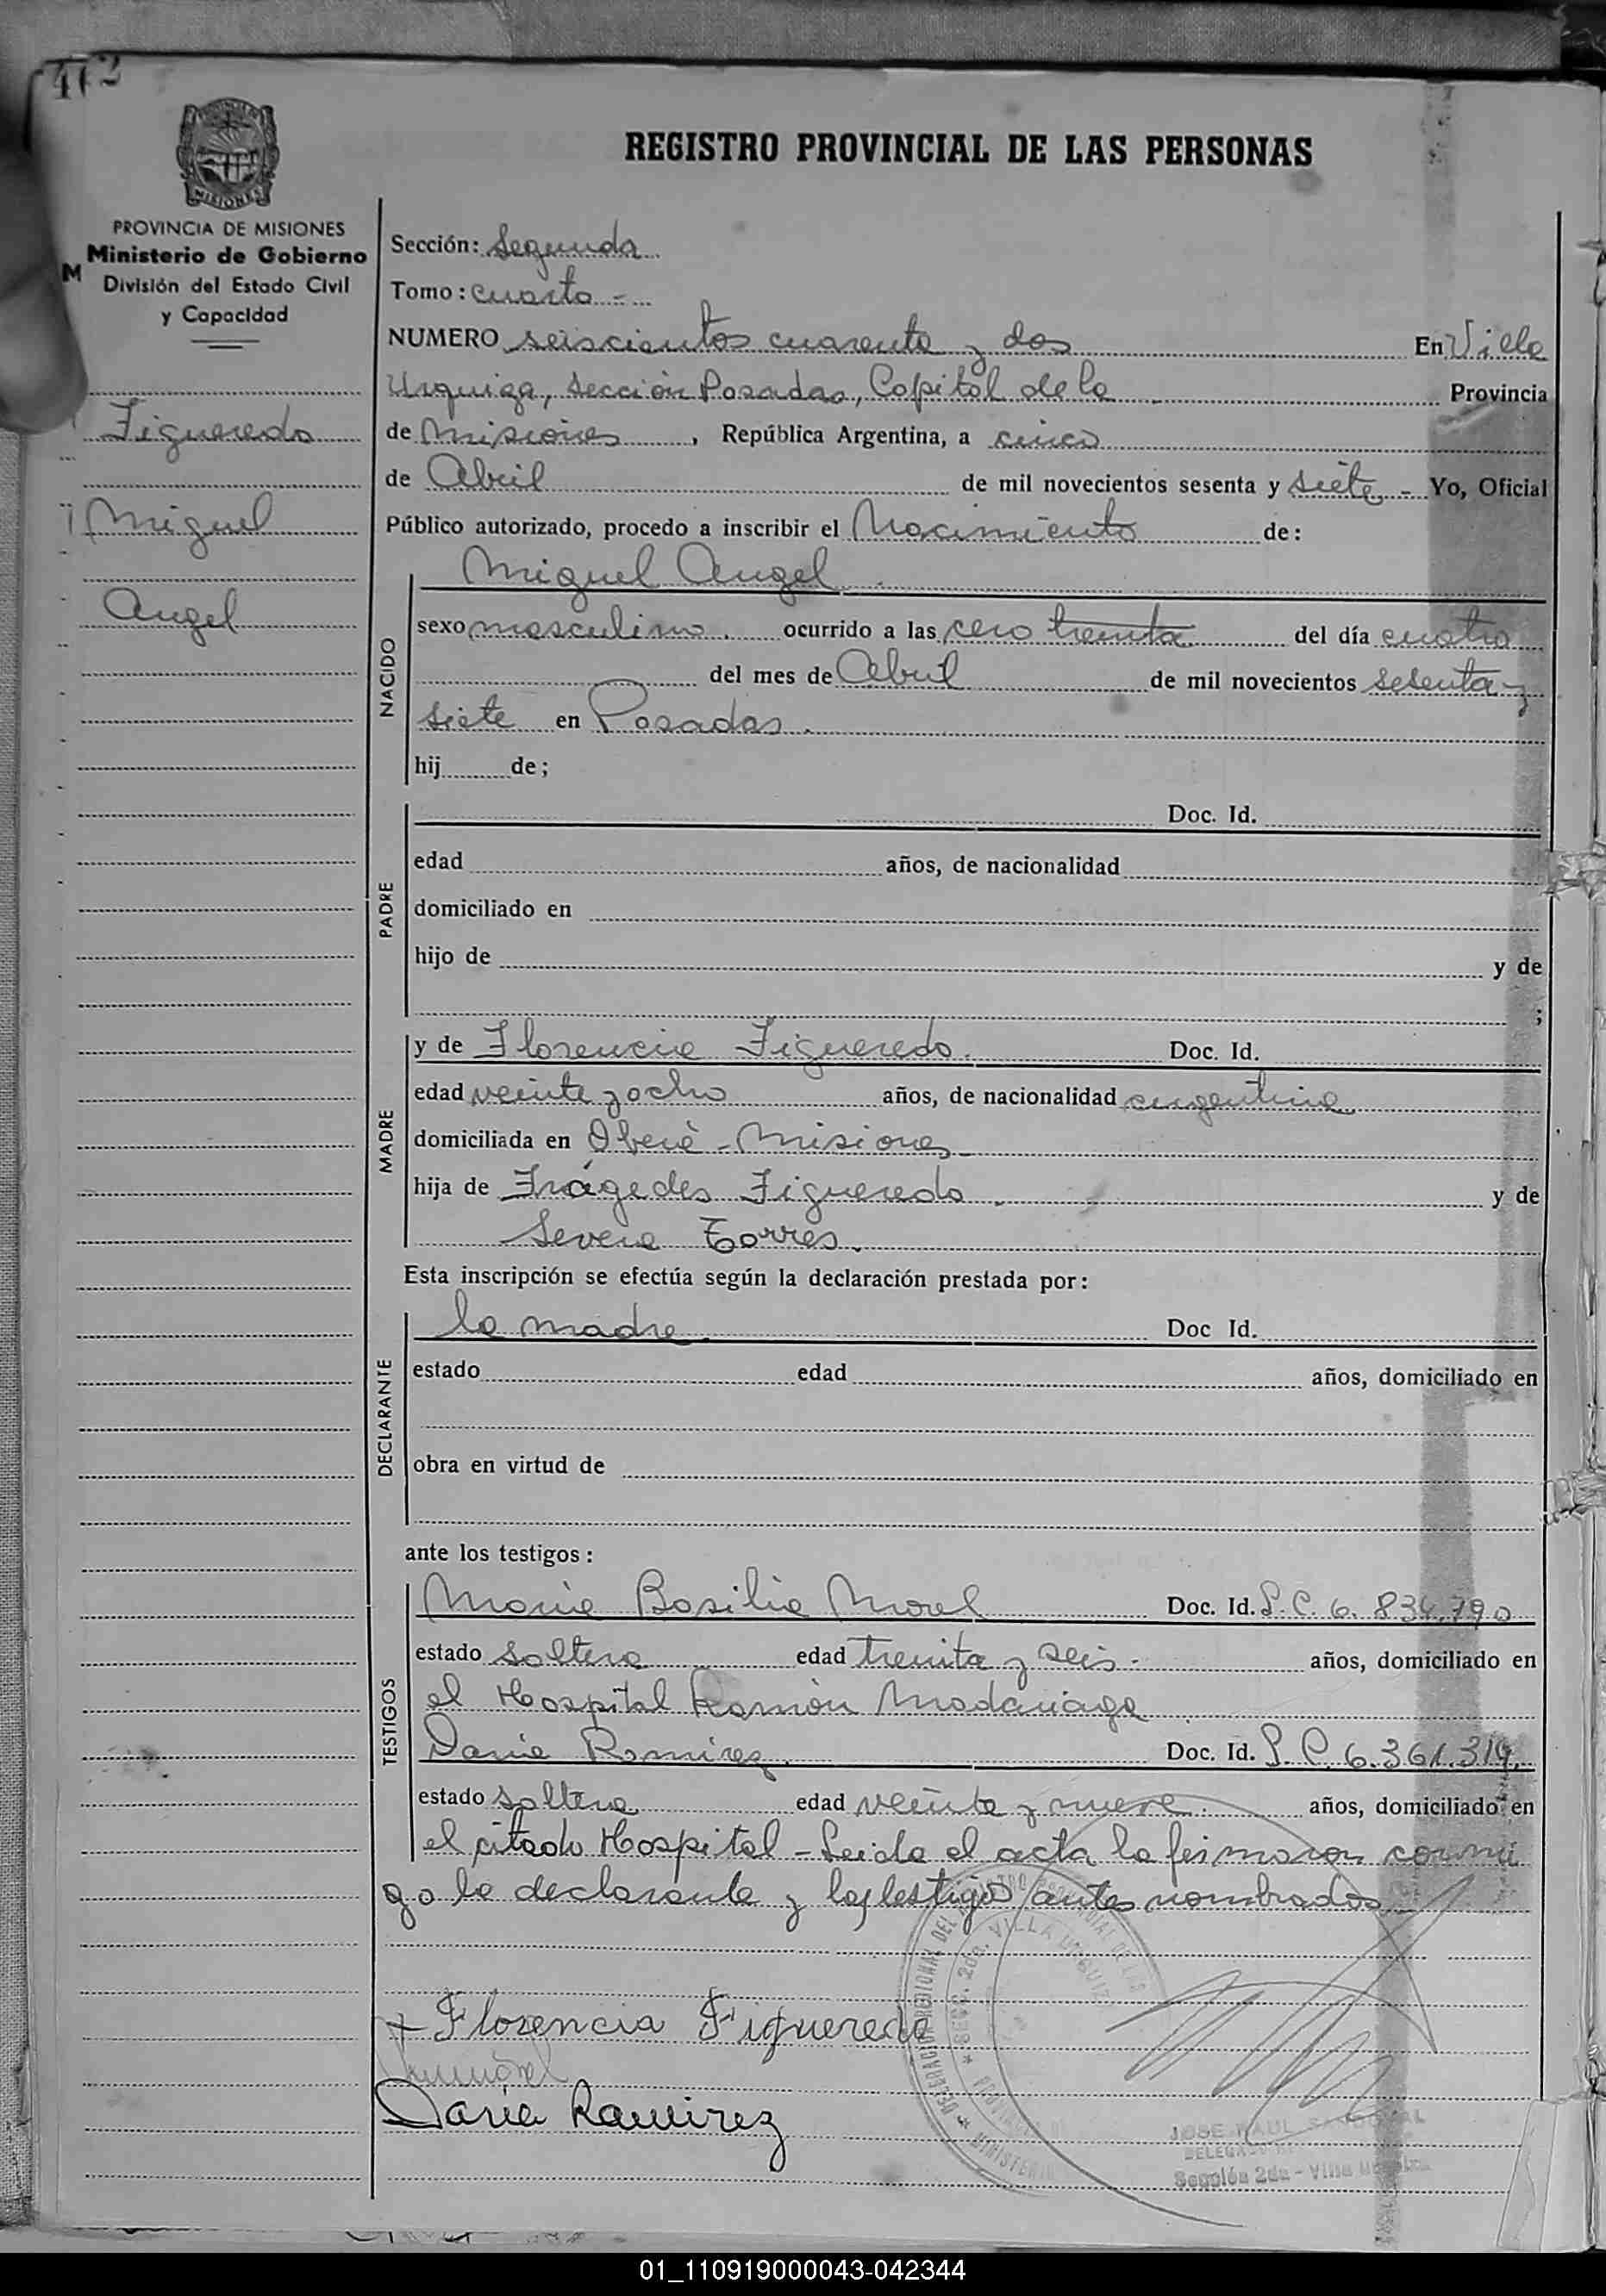 412
REGISTRO PROVINCIAL DE LAS PERSONAS
MISIONES
PROVINCIA DE MISIONES
Ministerio de Gobierno
M División del Estado Civil
y Capacidad
Figueredo
Miguel
Angel
Sección: Segunda
Tomo: cuarto -
NUMERO seiscientos cuarenta y dos En Villa
Urquiza, Sección Posadas, Capital de la Provincia
de Misiones, República Argentina, a cinco
de Abril de mil novecientos sesenta y siete - Yo, Oficial
Público autorizado, procedo a inscribir el Nacimiento de:
Miguel Angel
NACIDO
sexo masculino. ocurrido a las cero treinta del día cuatro
del mes de Abril de mil novecientos sesenta y
siete en Posadas.
hij de;
PADRE
Doc. Id.
edad años, de nacionalidad
domiciliado en
hijo de y de
;
MADRE
y de Florencia Figueredo. Doc. Id.
edad veinte y ocho años, de nacionalidad argentina
domiciliada en Oberá - Misiones
hija de Irágedes Figueredo y de
Severa Torres.
Esta inscripción se efectúa según la declaración prestada por:
DECLARANTE
la madre. Doc Id.
estado edad años, domiciliado en
obra en virtud de
ante los testigos:
TESTIGOS
María Basilia Morel Doc. Id. L. C. 6. 834.790
estado soltera edad treinta y seis. años, domiciliado en
el Hospital Ramón Madariaga
Daria Ramirez. Doc. Id. L. C. 6.361.319.
estado soltera edad veinte y nueve. años, domiciliado en
el citado Hospital - Leida el acta la firmaron conmi
go la declarante y los testigos antes nombrados
+ Florencia Figueredo
Daria Ramirez
SECC. 2da. VILLA URQUIZA
JOSE RAUL
Sección 2da - Villa
01_110919000043-042344